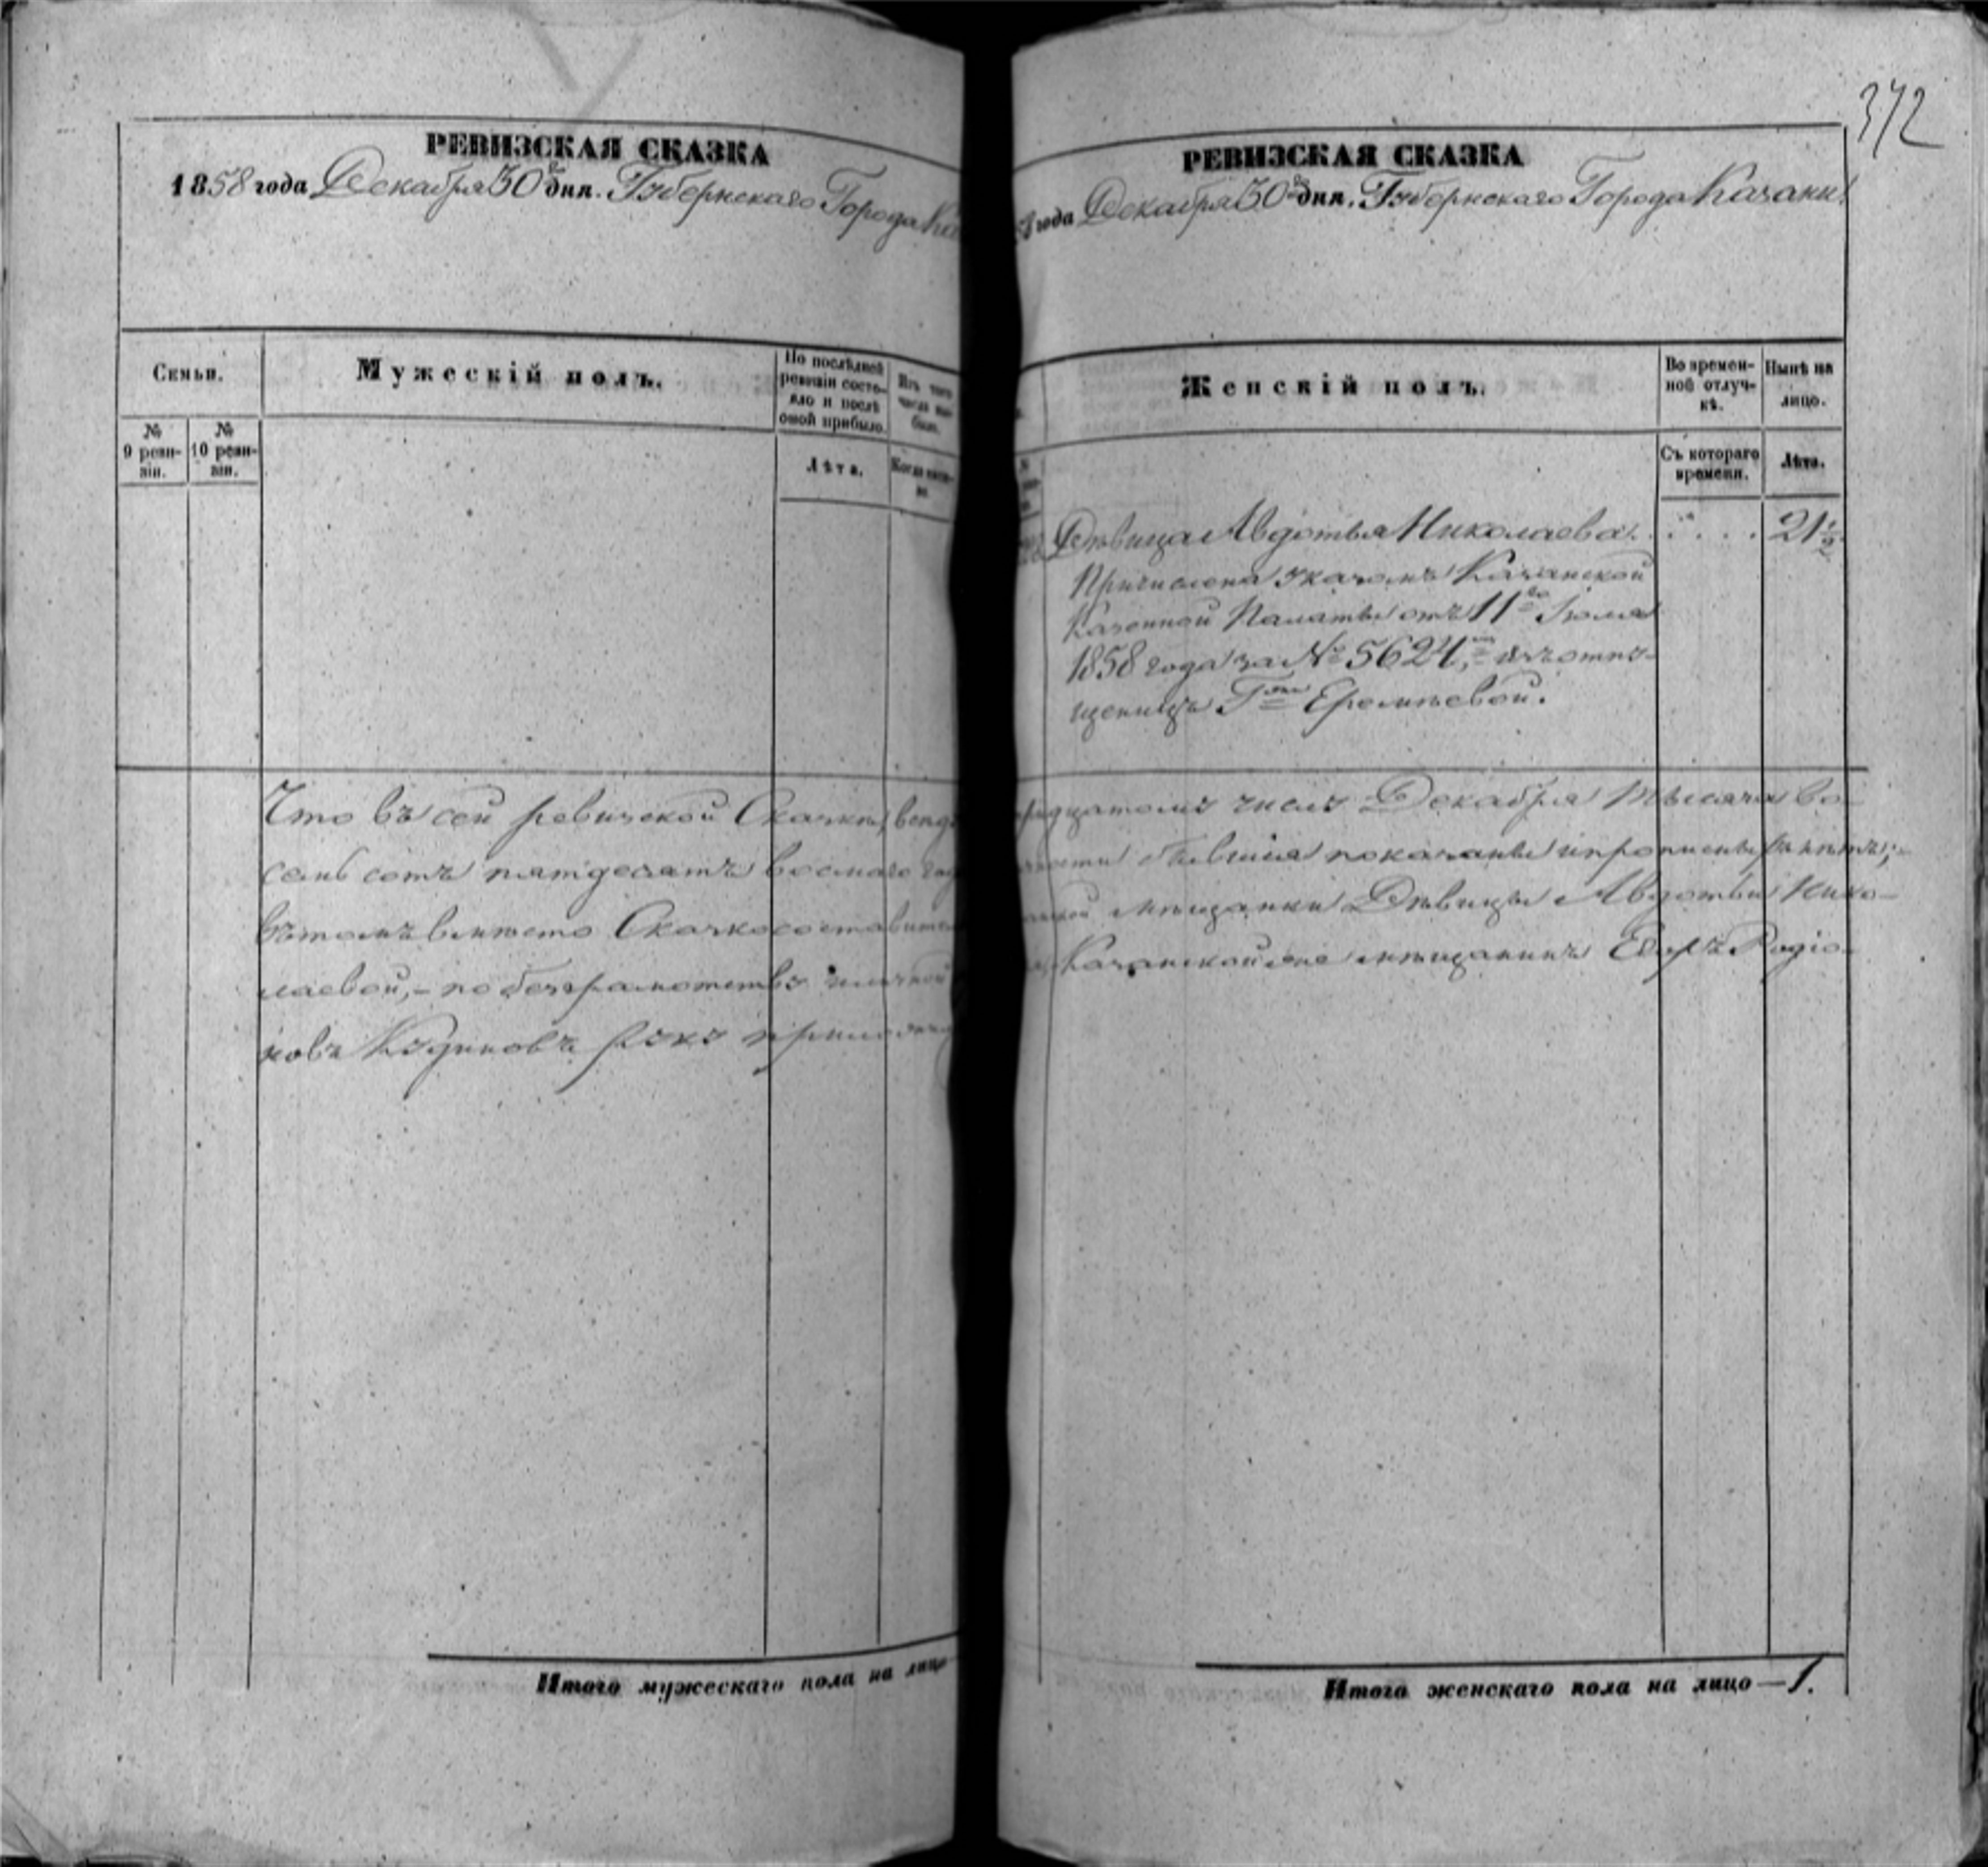 РЕВИЗСКАЯ СКАЗКА
1858 года Декабря 30го дня. Губернскаго Города Ка
Семьи.
Мужескій полъ.
По послѣдней ревизіи состояло и послѣ оной прибыло.
Изъ того числа выбыло.
№ 9 ревизіи.
№ 10 ревизіи.
Лѣта.
Когда именно
Что въ сей ревизской Сказки, въ
семь сотъ пятдесятъ восмаго год
въ томъ вместо Сказкосоставител
лаевой,- по безграмотству личной
новъ Кудиновъ руку приложил
Итого мужескаго пола на лицо
372
РЕВИЗСКАЯ СКАЗКА
8 года Декабря 30го дня. Губернскаго Города Казани
Женскій полъ.
Во временной отлучкѣ.
Нынѣ на лицо.
Съ котораго времени.
Лѣта.
Дѣвица Авдотья Николаева. . . . . 21½
Причислена указомъ Казанской
Казенной Палаты отъ 11го Іюля
1858 года за № 5624, изъ отпу-
щеницъ Гжи Еремѣевой.
ридцатомъ числѣ Декабря тысяча во-
бывшія показаны и пропис лѣтъ;
мѣщанки Дѣвицы Авдотьи Нико-
Казанской же мѣщанинъ Егоръ Родіо-
Итого женскаго пола на лицо — 1.